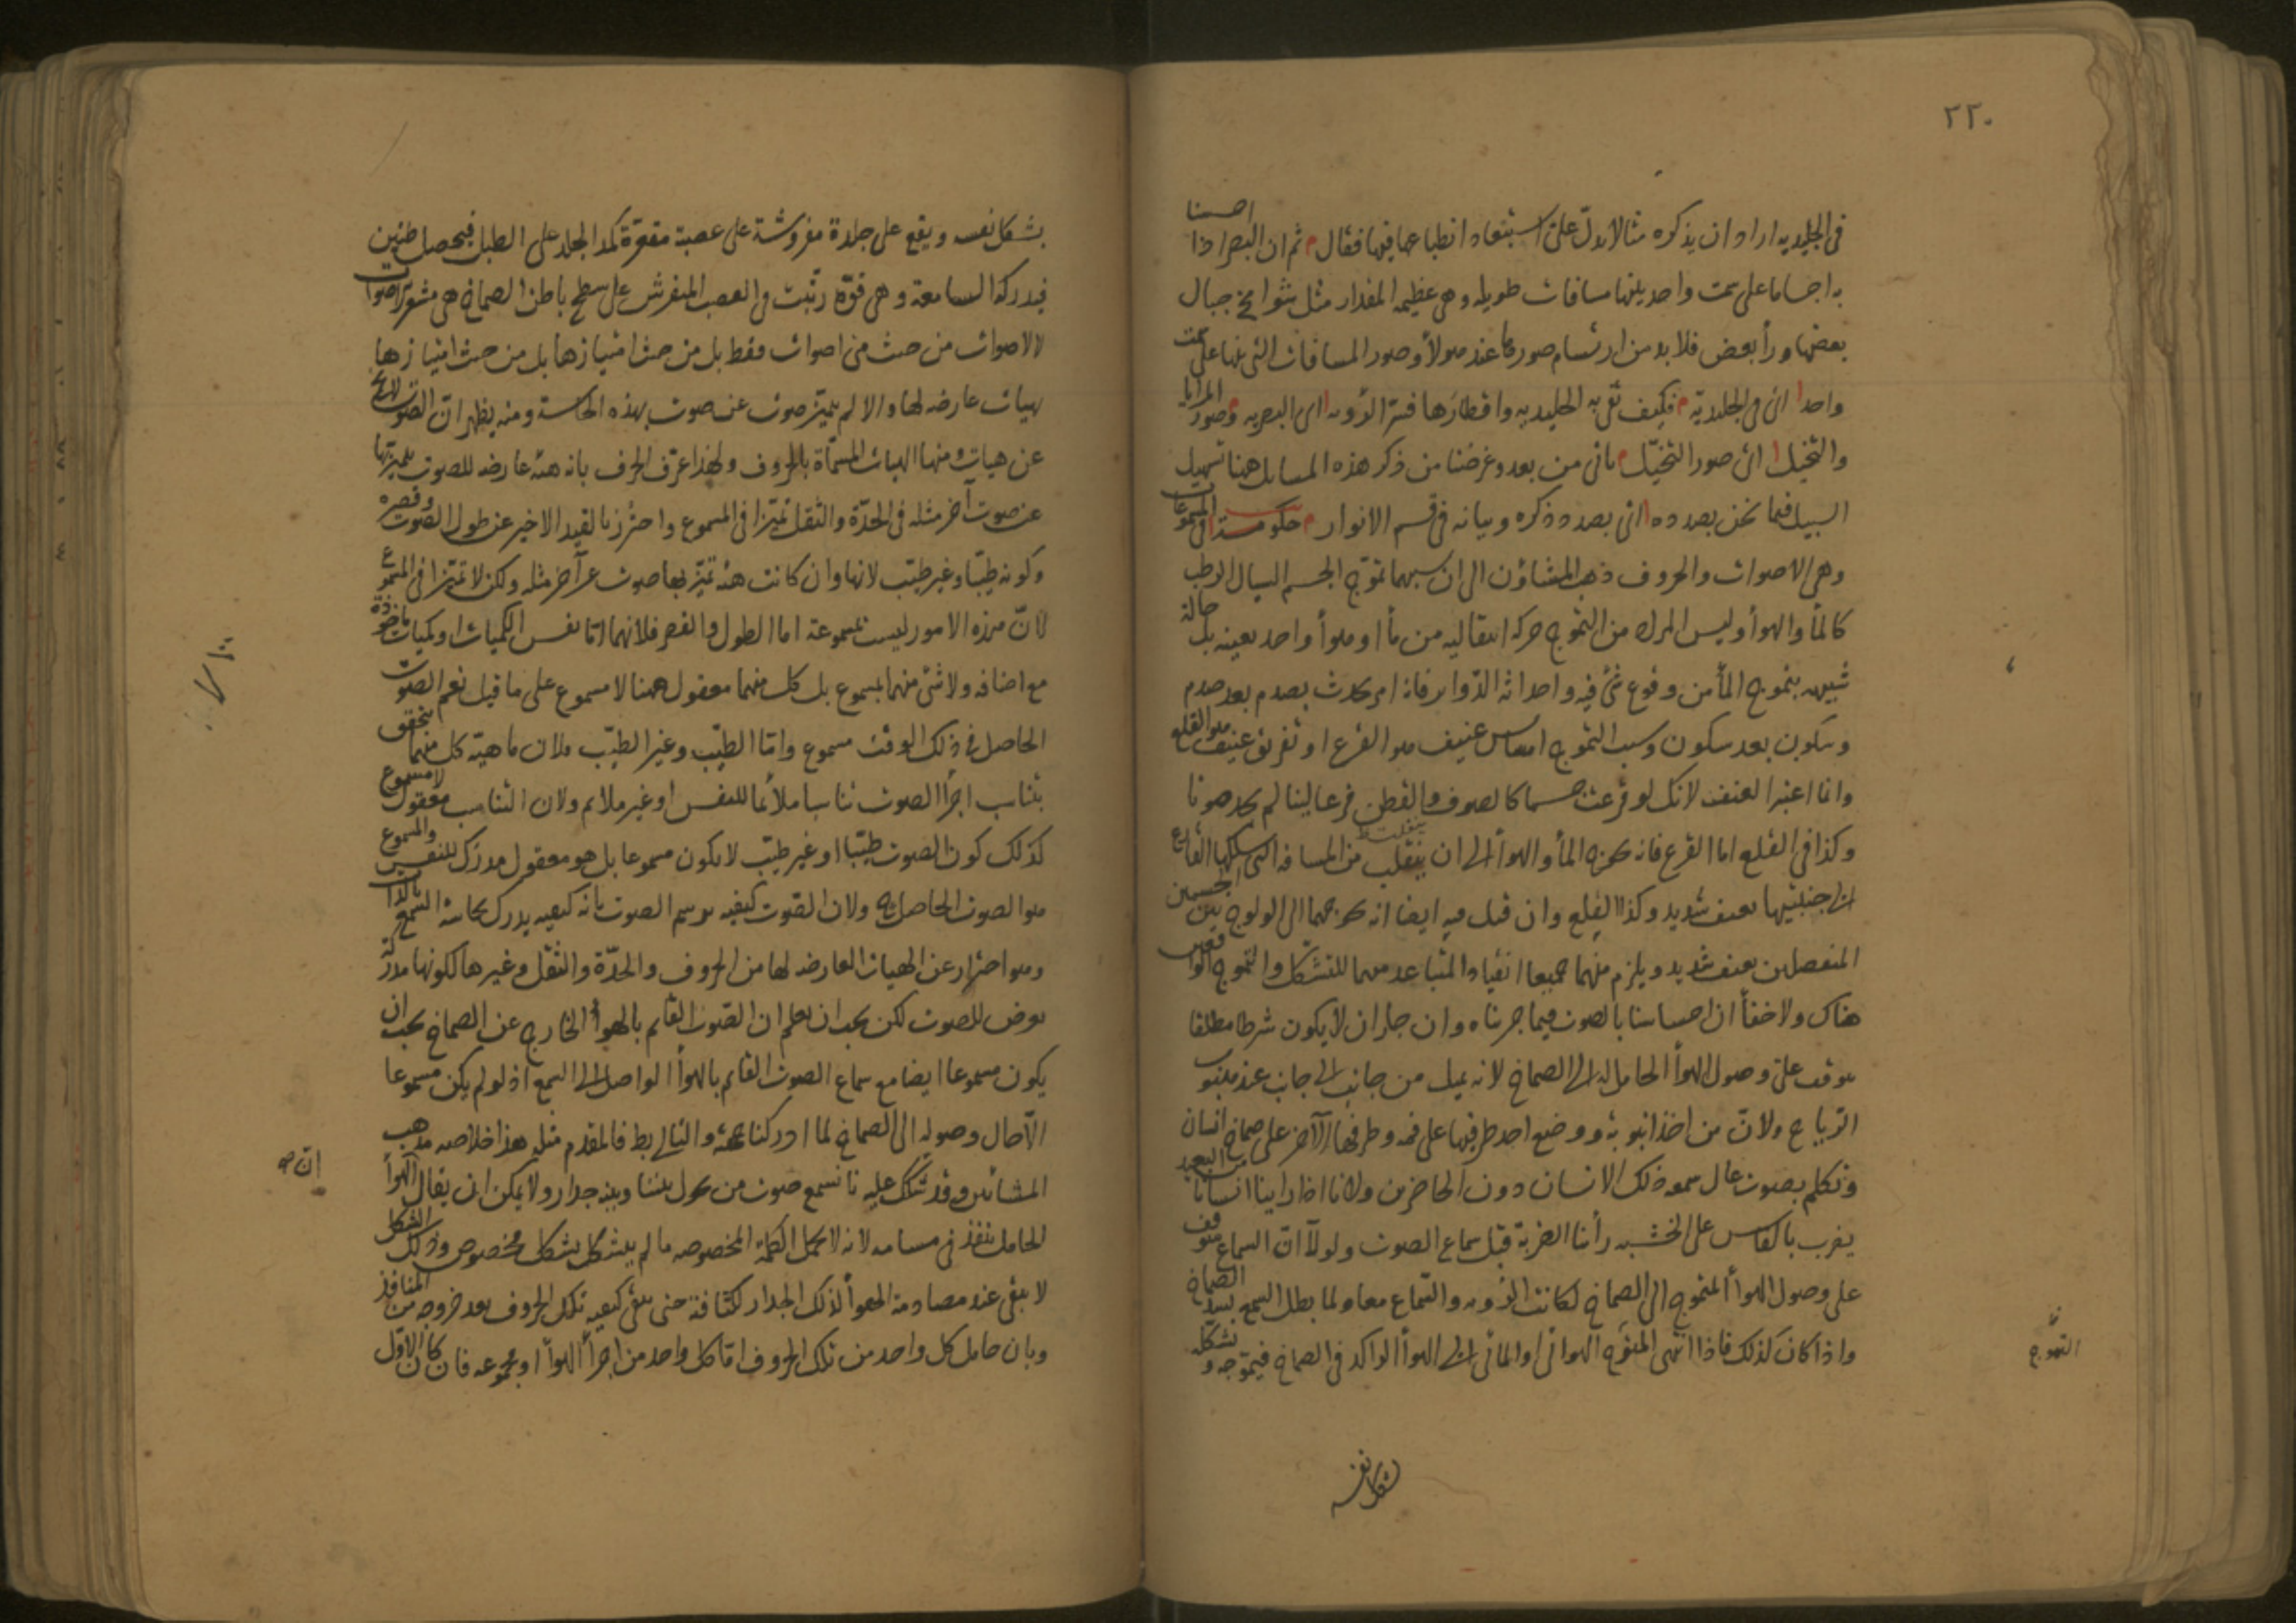 ٢٢٠
فى الجليديه اراد ان يذكره مثالا يدلّ على استبعاد انطباعها فيها فقال م ثم ان البصر اذا احسسنا
به اجساما على سمت واحد بينها مسافات طويله وهى عظيمه المقدار مثل شوامخ جبال
بعضها ورأ بعض فلا بد من ارتسام صورها عند هولأ وصور المسافات التى بينها على سمت
واحد ا اى فى الجليدية م فكيف تفى به الجليديه واقطارها فسرّ الرؤيه ا اى البصريه م وصور المرايا
والتخيل ا اى صور التخيّل م يأتى من بعد وغرضنا من ذكر هذه المسايل هنا تسهيل
السبيل فيما نحن بصدده ا اى بصدد ذكره وبيانه فى قسم الانوار م حكومة فى المسموعات
وهى الاصوات والحروف ذهب المشاؤن الى ان سببهما تموّج الجسم السيال الرطب
كالمأ والهوأ وليس المراد من التموج حركه انتقاليه من مأ او هوأ واحد بعينه بل حالة
شبيهه بتموج المأ من وقوع شئ فيه واحداثه الدواير فانه امر يحدث بصدم بعد صدم
وسكون بعد سكون وسبب التموج امساس عنيف هو القرع او تفريق عنيف هو القلع
وانما اعتبر العنف لانك لو قرعت جسما كالصوف والقطن قرعا لينا لم يجد صوتا
وكذا فى القلع اما القرع فانه يحوج المأ والهوأ الى ان ينقلب من المسافه التى يسلكها القارع
الى جنبتيها بعنف شديد وكذا القلع وان قيل فيه ايضا انه يحوجهما الى الولوج بين الجسمين
المنفصلين بعنف شديد ويلزم منهما جميعا انقياد المتباعد منهما للتشكل والتموج الواقعين
هناك ولا خفأ ان احساسنا بالصوت فيما جربناه وان جاز ان لا يكون شرطا مطلقا
يتوقف على وصول الهوأ الحامل له الى الصماخ لانه يميل من جانب الى جانب عند هبوب
الرياح ولانّ من اخذ انبوبة ووضع احد طرفيها على فمه وطرفها الآخر على صماخ انسان
وتكلم بصوت عال سمعه ذلك الانسان دون الحاضرين ولانا اذا راينا انسانا من البعيد
يضرب بالفاس على الخشبه رأينا الضربة قبل سماع الصوت ولولا ان السماع متوقف
على وصول الهوأ المتموج الى الصماخ لكانت الرؤيه والسماع معا ولما بطل السمع بسد الصماخ
واذا كان كذلك فاذا انتهى المتموج الهوائى او المائى الى الهوأ الراكد فى الصماخ فيموّجه ويشكّله
التموج
بشكل نفسه
بشكل نفسه ويقع على جلدة مفروشة على عصبة مقعرة كمد الجلد على الطبل فيحصل طنين
فيدركه السامعة وهى قوّة رتّبت فى العصب المنفرش على سطح باطن الصماخ هى مشعر الاصوات
لا الاصوات من حيث هى اصوات فقط بل من حيث امتيازها بل من حيث امتيازها
بهيات عارضه لها والا لم يتميّز صوت عن صوت بهذه الحاسة ومنه يظهر انّ الصوت لا يخ
عن هيات ومنها الهيات المسمّاة بالحروف ولهذا عرّف الحرف بانه هيئه عارضه للصوت يتميز بها
عن صوت آخر مثله فى الحدّة والثقل تميّزا فى المسموع واحترز بالقيد الاخير عن طول الصوت وقصره
وكونه طيّبا وغير طيّب لانها وان كانت هيئه تميّز بها صوت عن آخر مثله ولكن لا تميّزا فى المسموع
لانّ هذه الامور ليست بمسموعة اما الطول والقصر فلانهما امّا نفس الكميات او كميات ماخوذة
مع اضافه ولا شئ منهما بمسموع بل كل منهما معقول ههنا لا مسموع على ما قيل نعم الصوت
الحاصل فى ذلك الوقت مسموع وامّا الطيّب وغير الطيّب فلان ماهيّة كل منهما يتحقق
بتناسب اجزأ الصوت تناسبا ملائما للنفس او غير ملايم ولان التناسب معقول لا مسموع
كذلك كون الصوت طيّبا او غير طيّب لا يكون مسموعا بل هو معقول مدرك للنفس والمسموع
هو الصوت الحاصل ولان الصوت كيفيه يرسم الصوت بانه كيفيه يدرك بحاسة السمع بالذات
وهو احتراز عن الهيات العارضه لها من الحروف والحدّة والثقل وغيرها لكونها مدركة
بعرض للصوت لكن يجب ان يعلم ان الصوت القايم بالهوأ الخارج عن الصماخ يجب ان
يكون مسموعا ايضا مع سماع الصوت القايم بالهوأ الواصل الى السمع اذ لو لم يكن مسموعا
الّا حال وصوله الى الصماخ لما ادركنا جهته والتالى بط فالمقدم مثله هذا خلاصه مذهب
المشائين وقد شكك عليه نا نسمع صوت من يحول بيننا وبينه جدار ولا يمكن ان يقال الهوأ
ان صه
الحامل ينفذ فى مسامه لانه لا يحمل الكلمة المخصوصه ما لم يتشكل بشكل مخصوص وذلك الشكل
لا يبقى عند مصادمة الهوأ لذلك الجدار لكثافته حتى يبقى كيفيه تلك الحروف بعد خروجه من المنافذ
وبان حامل كل واحد من تلك الحروف امّا كل واحد من اجزأ الهوأ او مجموعه فان كان الاوّل